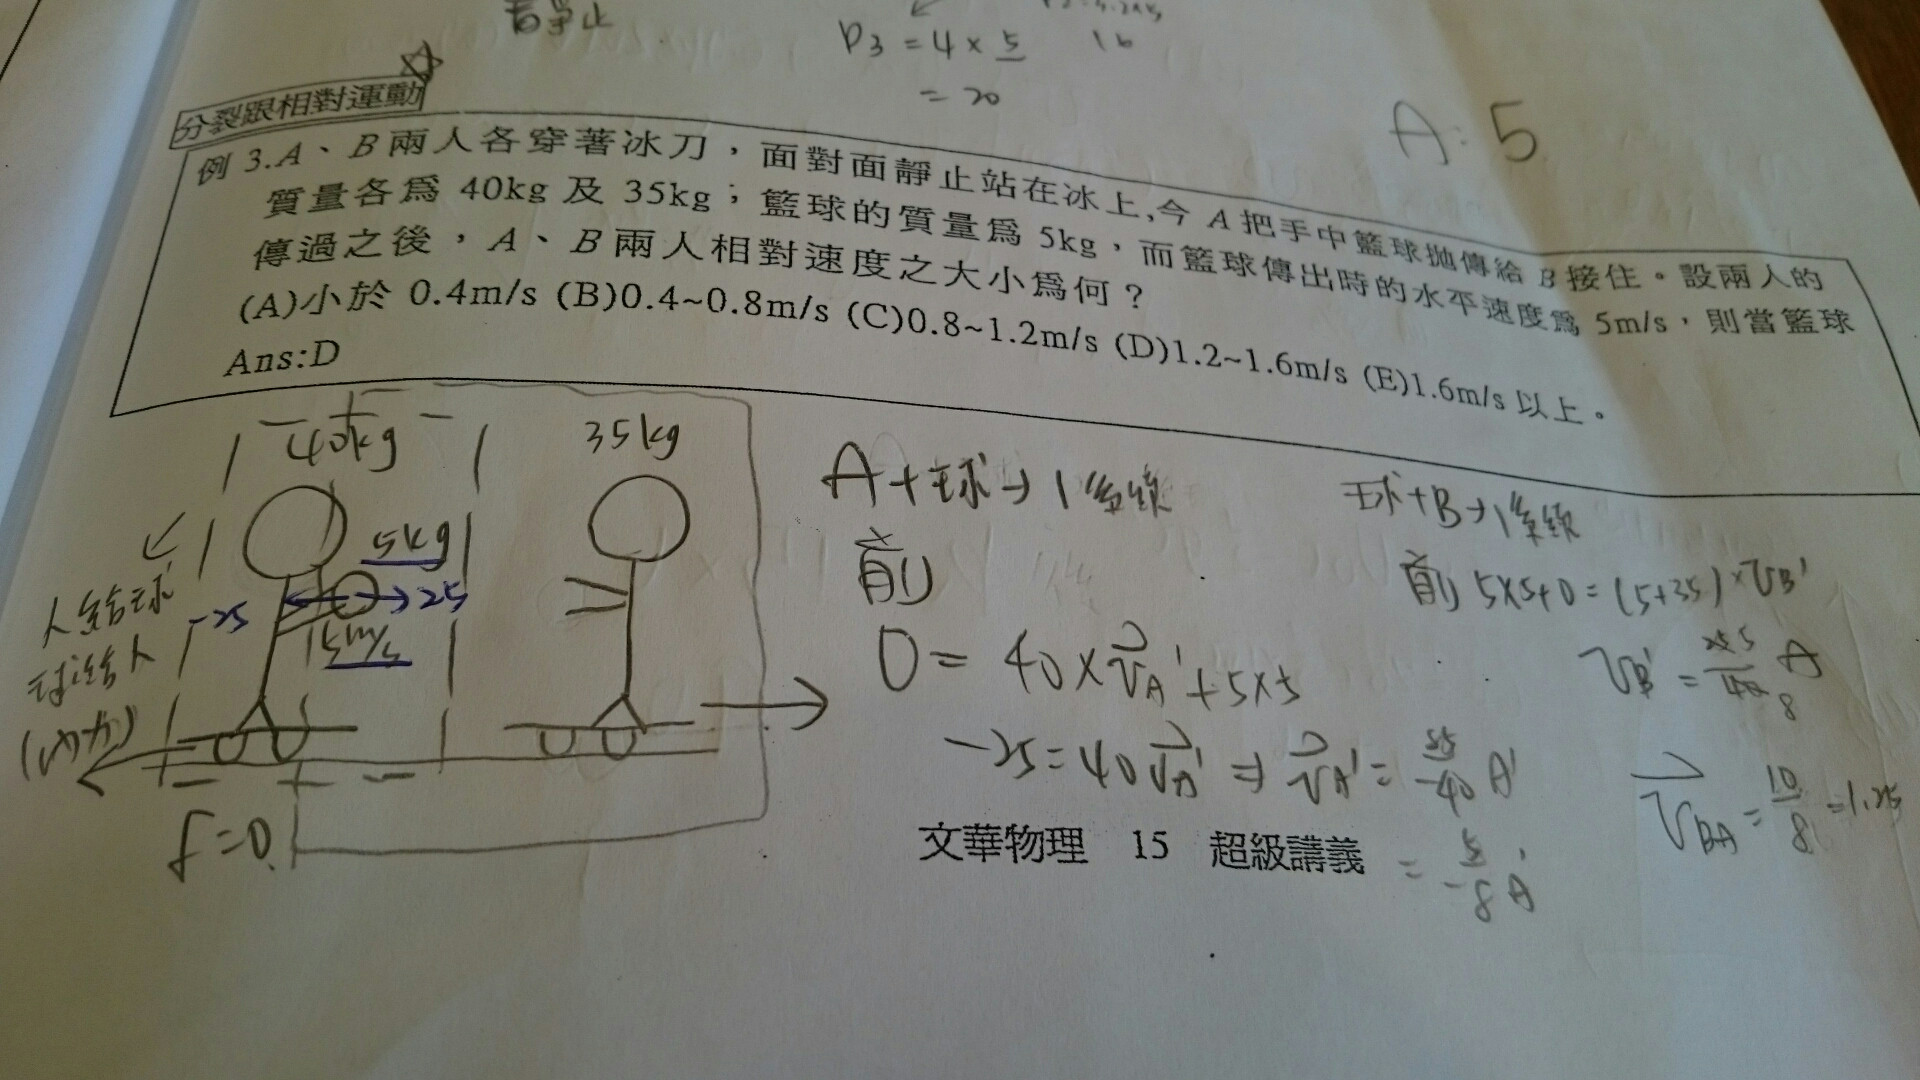 P3 = 4 × 5
= 20
A: 5
分裂跟相對運動
例 3.A、B 兩人各穿著冰刀，面對面靜止站在冰上,今 A 把手中籃球拋傳給 B 接住。設兩人的
質量各為 40kg 及 35kg；籃球的質量為 5kg，而籃球傳出時的水平速度為 5m/s，則當籃球
傳過之後，A、B 兩人相對速度之大小為何？
(A)小於 0.4m/s (B)0.4~0.8m/s (C)0.8~1.2m/s (D)1.2~1.6m/s (E)1.6m/s 以上。
Ans:D
40kg
35kg
5kg
-25
25
5m/s
人給球
球給人
(內力)
f=0
A+球→1系統
前
0 = 40×v⃗A' + 5×5
-25 = 40v⃗A' ⇒ v⃗A' =
球+B→1系統
前 5×5+0 = (5+35)×vB'
vB' =
v⃗BA = 10/8 = 1.25
文華物理 15 超級講義